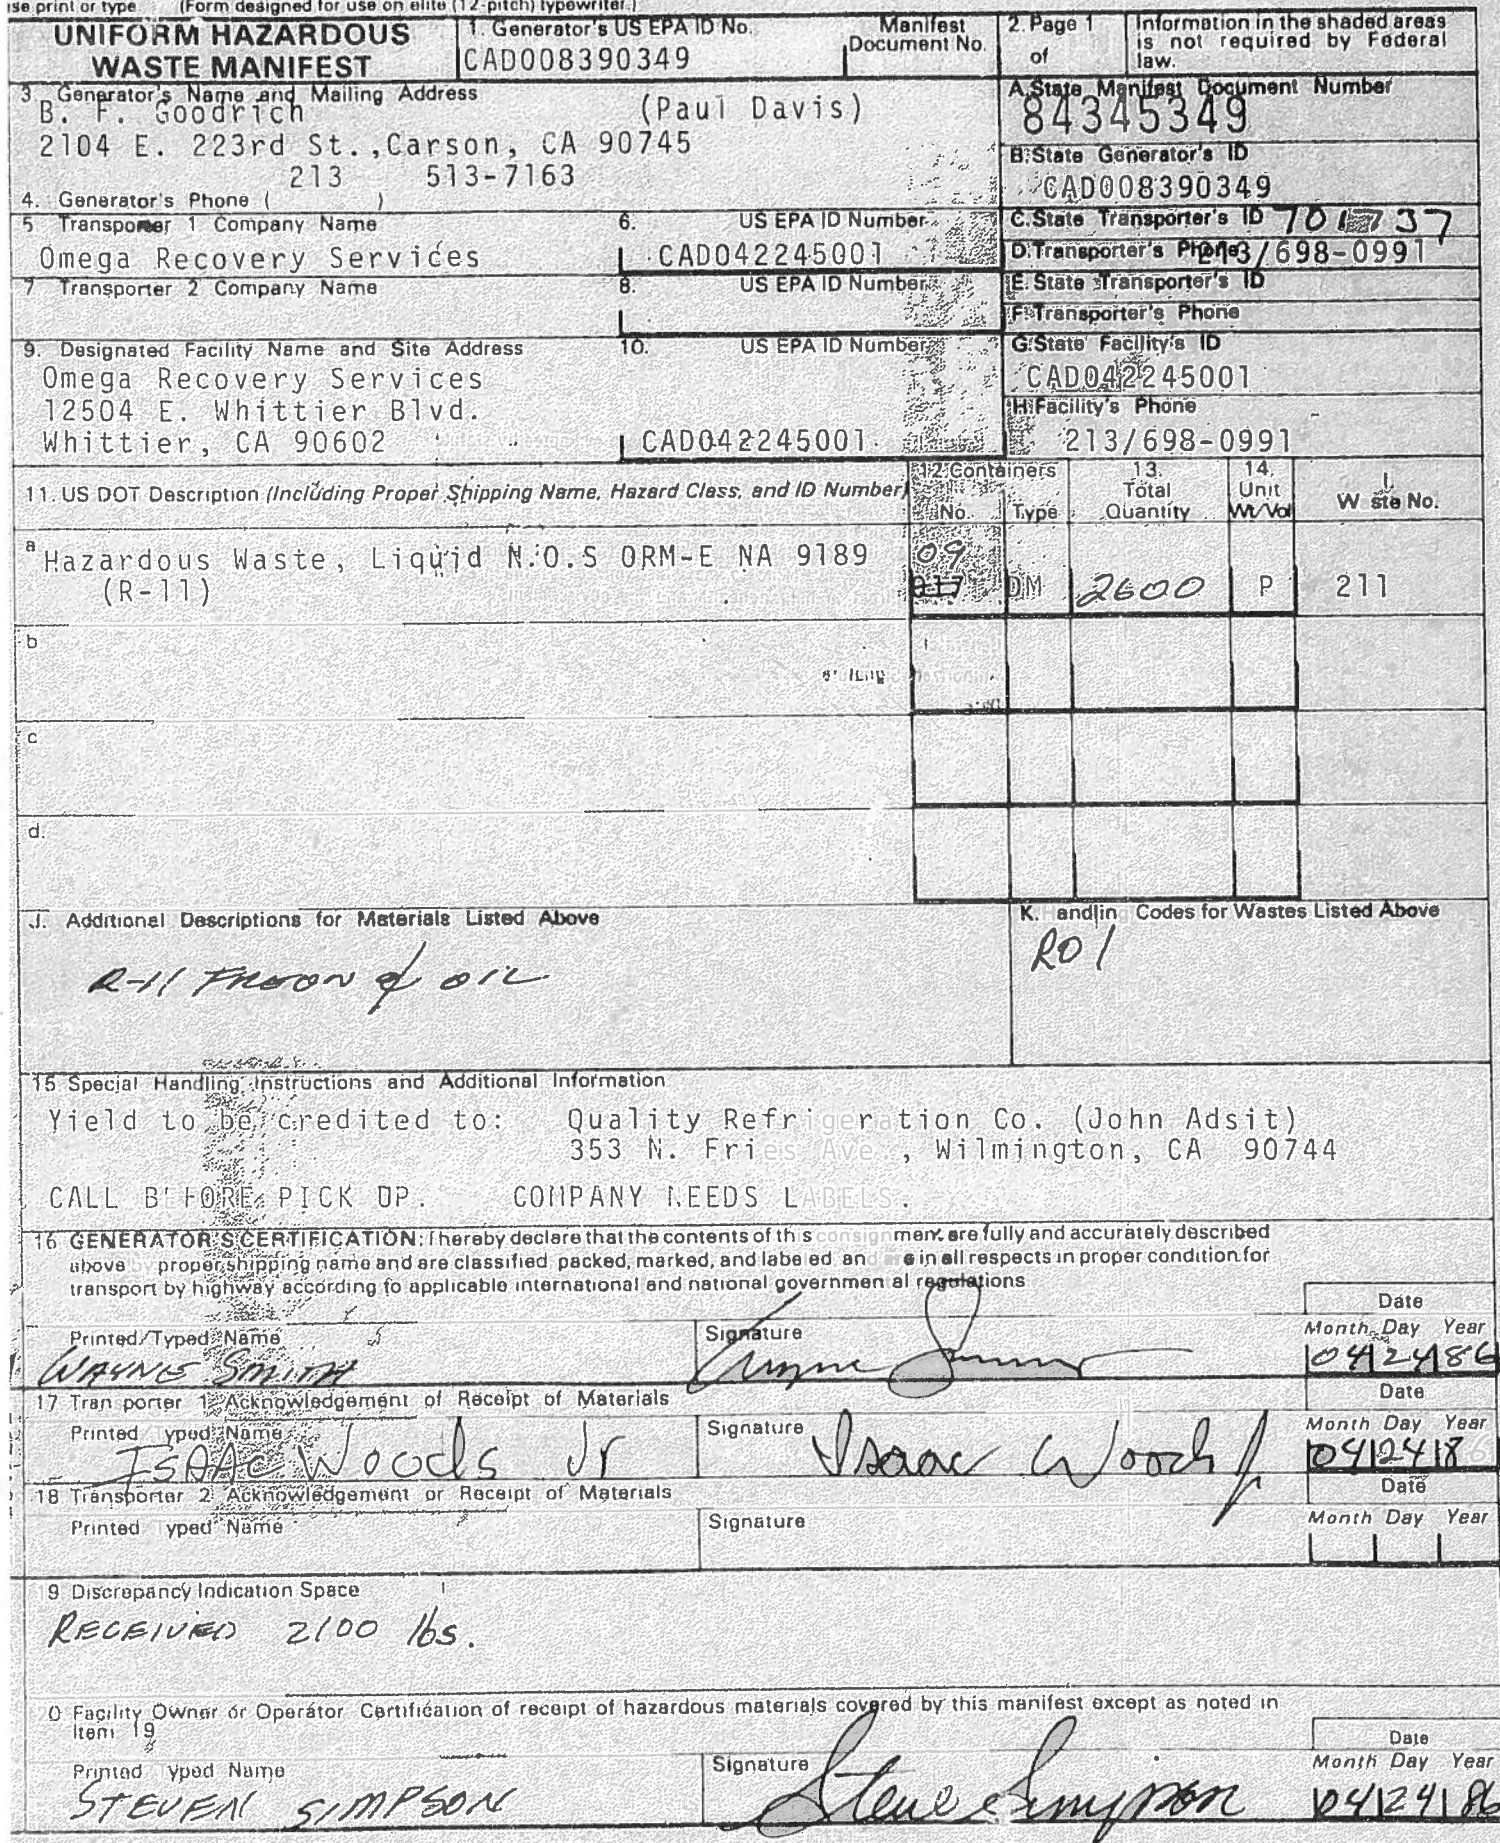 se print or type (Form designed for use on elite (12-pitch) typewriter.)
UNIFORM HAZARDOUS
WASTE MANIFEST
1. Generator's US EPA ID No.
CAD008390349
Manifest
Document No.
2. Page 1
of
Information in the shaded areas
is not required by Federal
law.
3. Generator's Name and Mailing Address
B. F. Goodrich (Paul Davis)
2104 E. 223rd St.,Carson, CA 90745
213 513-7163
4. Generator's Phone ( )
A.State Manifest Document Number
84345349
B.State Generator's ID
CAD008390349
5 Transporter 1 Company Name
Omega Recovery Services
6. US EPA ID Number
CAD042245001
C.State Transporter's ID
D.Transporter's Phone 213/698-0991
7 Transporter 2 Company Name
8. US EPA ID Number
E.State Transporter's ID
F.Transporter's Phone
9. Designated Facility Name and Site Address
Omega Recovery Services
12504 E. Whittier Blvd.
Whittier, CA 90602
10. US EPA ID Number
CAD042245001
G.State Facility's ID
CAD042245001
H.Facility's Phone
213/698-0991
11. US DOT Description (Including Proper Shipping Name, Hazard Class, and ID Number)
12.Containers
No. Type
13.
Total
Quantity
14.
Unit
Wt/Vol
I.
W ste No.
a Hazardous Waste, Liquid N.O.S ORM-E NA 9189
(R-11)
09
017 DM 2600 P 211
b
c
d.
J. Additional Descriptions for Materials Listed Above
R-11 FREON & OIL
K. Handlin Codes for Wastes Listed Above
R01
15 Special Handling Instructions and Additional Information
Yield to be credited to: Quality Refrigeration Co. (John Adsit)
353 N. Fries Ave., Wilmington, CA 90744
CALL BEFORE PICK UP. COMPANY NEEDS LABELS.
16 GENERATOR'S CERTIFICATION: I hereby declare that the contents of this consignment are fully and accurately described
above by proper shipping name and are classified packed, marked, and labe ed and are in all respects in proper condition for
transport by highway according to applicable international and national governmen al regulations
Date
Printed/Typed Name
WAYNE SMITH
Signature
Wayne Smith
Month Day Year
04 24 86
17 Tran porter 1 Acknowledgement of Receipt of Materials
Date
Printed yped Name
ISAAC Woods Jr
Signature
Isaac Woods Jr
Month Day Year
04 24 86
18 Transporter 2 Acknowledgement or Receipt of Materials
Date
Printed yped Name
Signature
Month Day Year
9 Discrepancy Indication Space
RECEIVED 2100 lbs.
0 Facility Owner or Operator Certification of receipt of hazardous materials covered by this manifest except as noted in
Item 19
Date
Printed yped Name
STEVEN SIMPSON
Signature
Steve Simpson
Month Day Year
04 24 86